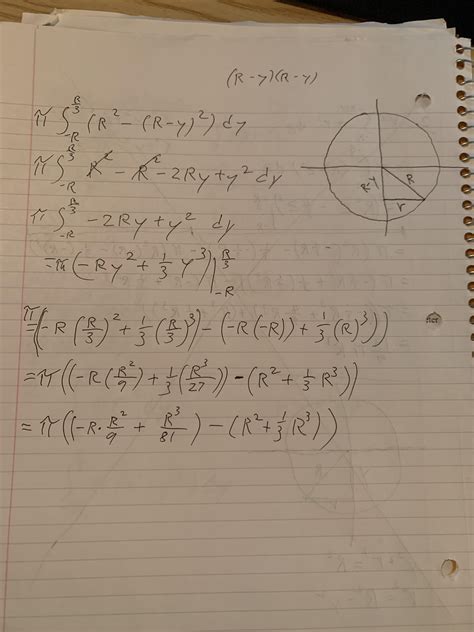 (R-y)(R-y)
π∫_{-R}^{R/3} (R² - (R-y)²) dy
π∫_{-R}^{R/3} R² - R² - 2Ry + y² dy
π∫_{-R}^{R/3} -2Ry + y² dy
=π(-Ry² + 1/3 y³)|_{-R}^{R/3}
π=((-R(R/3)² + 1/3(R/3)³) - (-R(-R)) + 1/3(R)³))
=π((-R(R²/9) + 1/3(R³/27)) - (R² + 1/3 R³))
=π((-R·R²/9 + R³/81) - (R² + 1/3 R³))
R-y
R
r